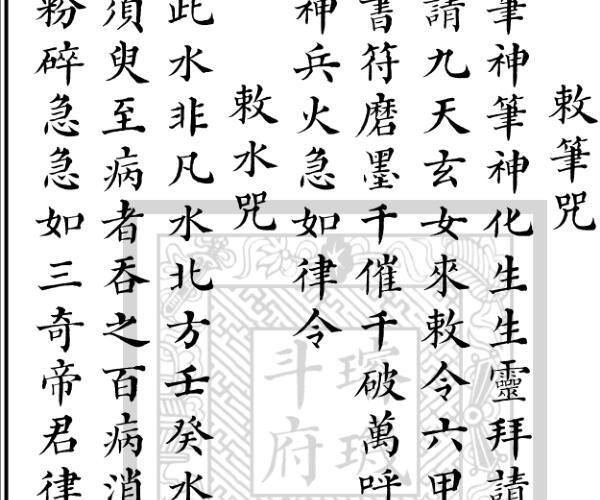 敕筆咒
筆神筆神化生生靈拜請
請九天玄女來敕令六甲
書符磨墨千催千破萬呼
神兵火急如律令
敕水咒
此水非凡水北方壬癸水
須臾至病者吞之百病消
粉碎急急如三奇帝君律
璿璣
斗府